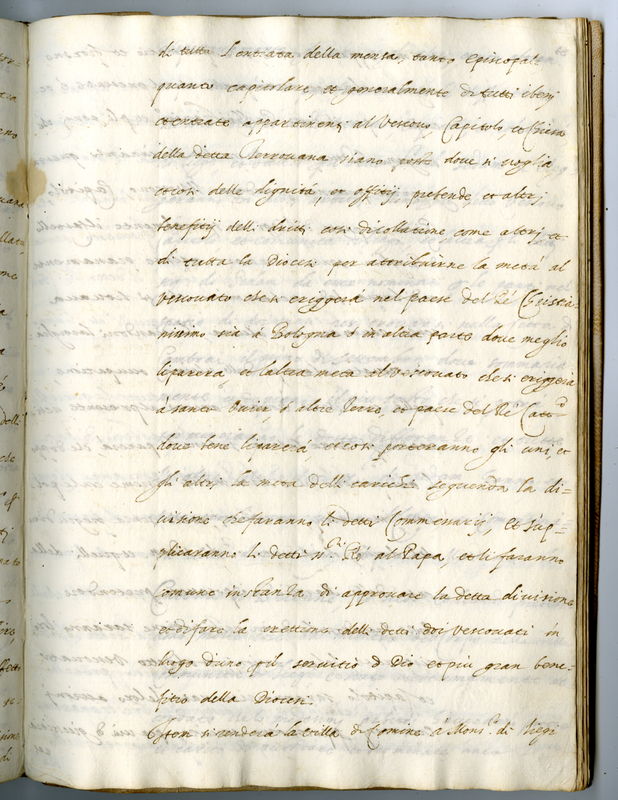 di tutta l'entrata della mensa, tanto episcopale
quanto capitolare, et generalmente di tutti i beni
et entrate appartinenti al Vescovo, Capitolo, et Chiesa
della detta Terrovana siano poste dove si voglia
et così delle dignità, et offitij prebende, et altri
benefitij delli detti così di collatione come altri et
di tutta la Diocesi per attribuirne la metà al
Vescovato che si eriggerà nel paese del Ré Christia-
nissimo sia à Bologna ò in altra parte dove meglio
li parerà, et l'altra metà al Vescovato che si eriggerà
à santo Omer, ò altre Terre, et paese del Ré Catt.co
dove bene li parerà et così porteranno gli uni, et
gli altri la metà delli carichi seguendo la di-
visione che faranno li detti Commissarij, et sup-
plicaranno li detti ss.ri Ré al Papa, et li faranno
comune instanza di approvare la detta divisione
et di fare la erettione delli detti doi vescovati in
luogo d'uno p il servitio d Dio et più gran bene-
fitio della Diocesi.
Item si renderà la villa di Comine à Mons.r di Liegi